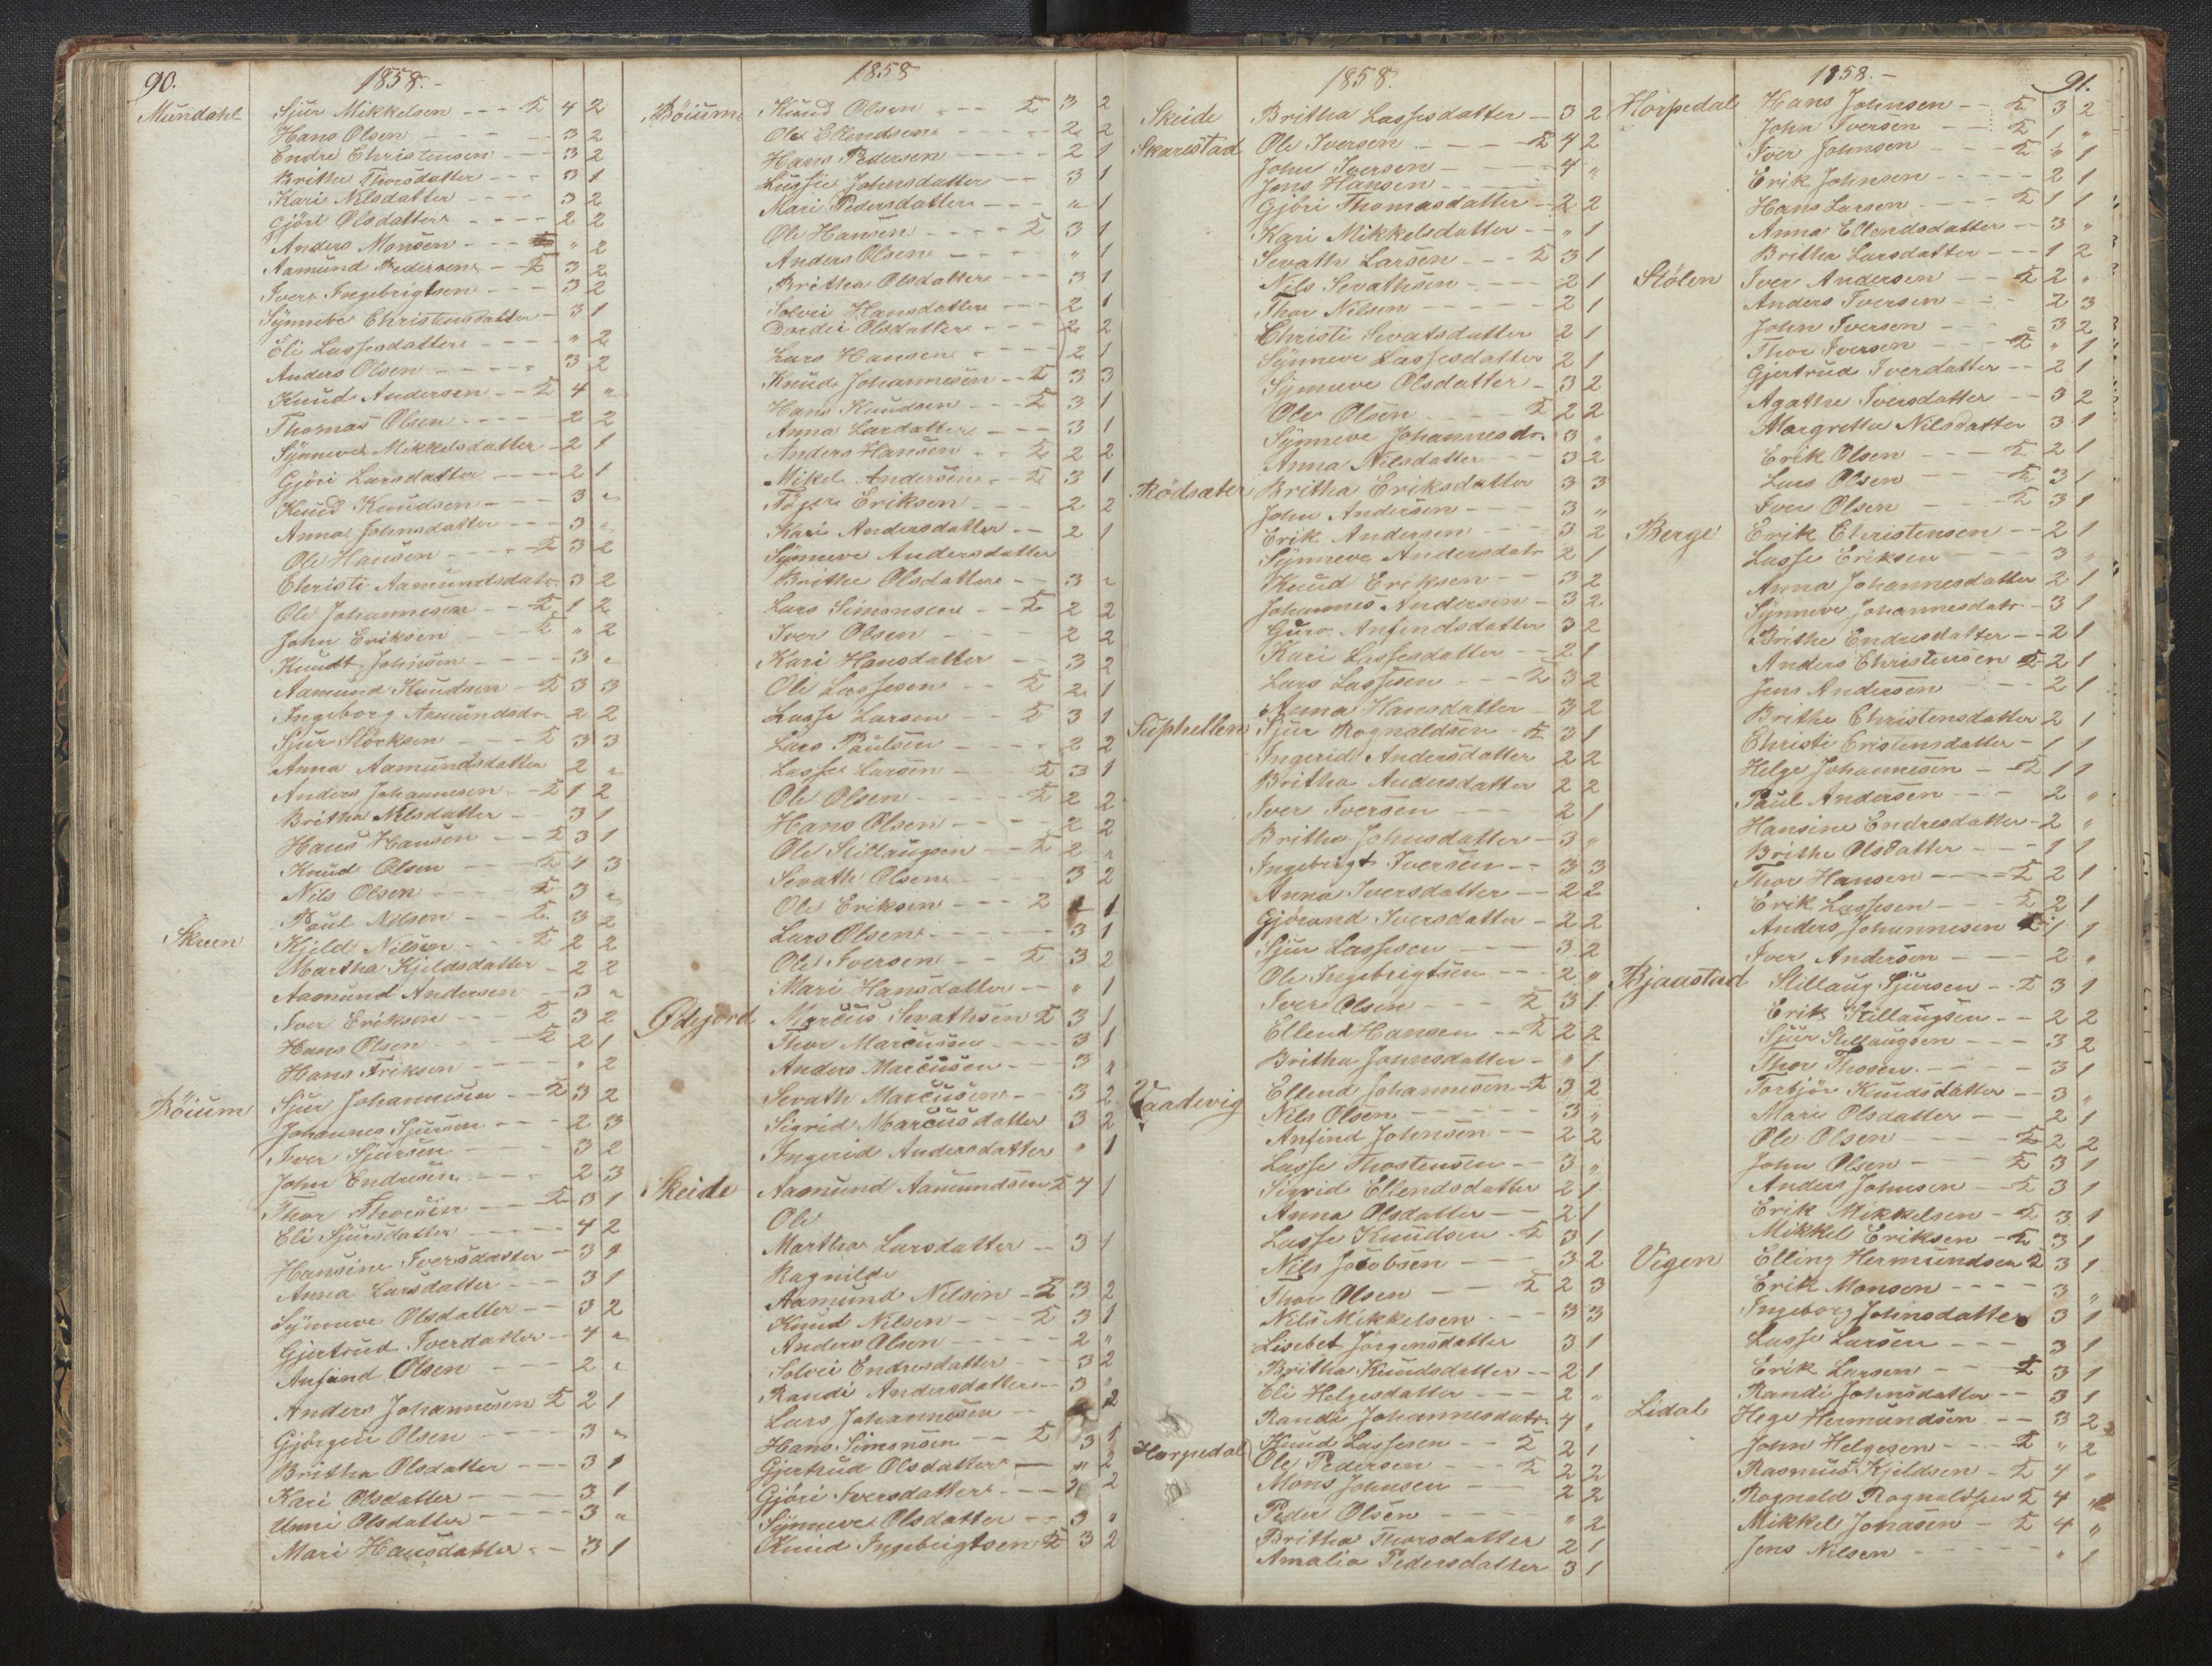 90.
1858.-
Mundahl Sjur Mikkelsen - - - Σ 4 2
Hans Olsen - - - - 3 2
Endre Christensen - - 3 2
Britha Thorsdatter - - - 3 1
Kari Nilsdatter - - - - 3 2
Gjöri Olsdatter - - - - 2 2
Anders Monsen - - - „ 2
Aamund Pedersen - - Σ 3 2
Iver Ingebrigtsen - - - 3 2
Synneve Christensdatter - 3 1
Eli Lassesdatter - - - - „ 2
Anders Olsen - - - - - 3 2
Knud Andersen - - Σ 4 „
Thomas Olsen - - - - 2 2
Synneve Mikkelsdatter - 2 1
Gjöri Larsdatter - - - 2 1
Knud Knudsen - - - - 3 „
Anna Johnsdatter - - - 3 „
Ole Hansen - - - - Σ 3 2
Christi Aamundsdatr. 3 2
Ole Johannesen - - Σ 1 2
John Eriksen - - - Σ „ 2
Knudt Johnsen - - - - 3 „
Aamund Knudsen - Σ 3 3
Ingeborg Aamundsdr. 2 2
Sjur Störksen - - - Σ 3 3
Anna Aamundsdatter 2 „
Anders Johannesen - Σ 1 2
Britha Nilsdatter - - 3 1
Hans Hansen - - Σ 3 1
Knud Olsen - - - Σ 4 3
Nils Olsen - - - - Σ 3 „
Paul Nilsen - - Σ. 3 2
Skeen Kjeld Nilsen - - - Σ 2 2
Martha Kjeldsdatter - 2 2
Aamund Andersen - 3 „
Iver Eriksen - - - Σ 3 2
Hans Olsen - - - Σ 2 1
Hans Eriksen - - - - „ 2
Böium Sjur Johannesen - - Σ 3 2
Johannes Sjursen - - - 2 3
Iver Sjursen - - - - 3 2
John Endresen - - - 2 3
Thor Thorsen - - - Σ 3 1
Eli Sjursdatter - - - - 4 2
Hansine Iversdatter - 3 1
Anna Larsdatter - - - 3 1
Synneve Olsdatter - - 3 2
Gjertrud Iverdatter - - 4 „
Anfind Olsen - - - 2 „
Anders Johannesen Σ 2 1
Gjörgen Olsen - - - - 3 „
Britha Olsdatter - - - 3 1
Kari Olsdatter - - - - 3 1
Unni Olsdatter - - - - 3 „
Mari Hansdatter - - 3 1
1858
Böium Knud Olsen - - - Σ 3 2
Ole Ellendsen - - - - 2 2
Hans Pedersen - - - - 2 1
Lussie Johnsdatter - - 3 1
Mari Pedersdatter - - - „ 1
Ole Hansen - - - - Σ 3 1
Anders Olsen - - - - „ 1
Britha Olsdatter - - - 3 1
Solvei Hansdatter - - - 2 1
Dordei Olsdatter - - - 2 2
Lars Hansen - - - - 2 1
Knud Johannesen - - Σ 3 3
Hans Knudsen - - - Σ 3 1
Anna Lardatter - - - 3 1
Anders Hansen - - Σ 2 2
Mikel Andersen - - Σ 3 1
Töger Eriksen - - - - 2 2
Kari Andersdatter - - 2 1
Synneve Andersdatter
Brithe Olsdatter - - 3 „
Lars Simonsen - - Σ 2 2
Iver Olsen - - - - 2 2
Kari Hansdatter - - 3 2
Ole Lassesen - - Σ 2 1
Lasse Larsen - - Σ 3 1
Lars Paulsen - - - - 2 2
Lasse Larsen - - - Σ 3 1
Ole Olsen - - - - - Σ 2 2
Hans Olsen - - - - 2 2
Ole Stillaugsen - - Σ 2 „
Sevath Olsen - - - - 3 2
Ole Eriksen - - - Σ 1
Lars Olsen - - - - - 3 1
Ole Iversen - - Σ 3 2
Mari Hansdatter - - „ 1
Ødejord Marcus Sevathsen Σ 3 1
Thor Marcusen - - - - 3 1
Anders Marcusen - - - 3 „
Sevath Marcusen - - 3 2
Sigrid Marcusdatter 3 2
Ingerid Andersdatter „ 1
Skeide Aamund Aamundsen Σ 4 1
Ole
Martha Larsdatter - - 3 1
Ragnilde
Aamund Nilsen - Σ 3 2
Knud Nilsen - - - Σ 3 1
Anders Olsen - - - - 2 „
Solvei Endresdatter - - 3 2
Randi Andersdatter - - 3 „
Lars Johannesen - - 2
Hans Simonsen - - Σ 3 1
Gjertrud Olsdatter - - „ 2
Gjöri Iversdatter - - - 2 2
Synneve Olsdatter - - 3 „
Knud Ingebrigtsen Σ 3 2
1858.
Skeide Britha Lassesdatter - - 3 2
Skarestad Ole Iversen - - - - Σ 4 2
John Iversen - - - - 4 „
Jens Hansen - - - -
Gjöri Thomasdatter - 2 2
Kari Mikkelsdatter - - „ 1
Sevath Larsen - - - Σ 3 1
Nils Sevathsen - - - 2 1
Thor Nilsen - - - - 2 1
Christi Sevatsdatter 2 1
Synneve Lassesdatter 2 1
Synneve Olsdatter - 3 2
Ole Olsen - - - - Σ 2 2
Synneve Johannesdr. 3 „
Anna Nilsdatter - - 3 2
Rödsæter Britha Eriksdatter 3 3
John Andersen - - - 3 „
Erik Andersen - - - 3 2
Synneve Andersdatr 2 1
Knud Eriksen - - 3 2
Johannes Andersen - 3 2
Guro Anfindsdatter 3 2
Kari Lassesdatter - - 2 1
Lars Lassesen - - - Σ 3 2
Anna Hansdatter - 3 2
Suphellen Sjur Rognaldsen - Σ 3 1
Ingerid Andersdatter 2 2
Britha Andersdatter 2 2
Iver Iversen - - - 2 1
Britha Johnsdatter - 3 „
Ingebrigt Iversen - - 3 3
Anna Iversdatter - - 2 2
Gjörand Iversdatter - 2 2
Sjur Lassesen - - - 3 2
Ole Ingebrigtsen - - - 2 „
Iver Olsen - - - Σ 3 1
Ellend Hansen - - Σ 2 2
Britha Johnsdatter - „ 1
Vaadevig Ellend Johannesen - Σ 3 2
Nils Olsen - - - - - 3 „
Anfind Johnsen - - 2 2
Lasse Thostensen - - 3 „
Sigrid Ellendsdatter 2 1
Anna Olsdatter - - 2 1
Lasse Knudsen - Σ 3 1
Nils Jacobsen - - - 3 2
Thor Olsen - - Σ 2 3
Nils Mikkelsen - - 3 3
Lisebet Jörgensdatter 3 1
Britha Knudsdatter - - 2 1
Eli Helgesdatter - - - 2 „
Randi Johannesdatr. 4 „
Knud Lassesen - - Σ 2 1
Harpedal Ole Pedersen - - - Σ 2 2
Mons Johnsen - - - 2 2
Peder Olsen - - - - „ 2
Britha Thorsdatter 2 1
Amalia Pedersdatter 3 1
1858.-
91.
Horpedal Hans Johnsen - - Σ 3 2
John Iversen - - - Σ 1 „
Iver Johnsen - - - Σ „ 1
Erik Johnsen - - - - - 2 1
Hans Larsen - - - - Σ 1 1
Anna Ellendsdatter - - 3 „
Britha Larsdatter - - - 1 2
Stölen Iver Andersen - - - Σ 2 „
Anders Iversen - - - 2 3
John Iversen - - - - 3 2
Thor Iversen - - - Σ „ 1
Gjertrud Iverdatter - - 2 1
Agathe Iversdatter - - 3 2
Margrethe Nilsdatter 3 1
Erik Olsen - - - Σ 2 1
Lars Olsen - - - Σ 3 1
Iver Olsen - - - Σ 3 1
Berge Erik Christensen - - 2 1
Lasse Eriksen - - - 3 „
Anna Johannesdatter 2 1
Synneve Johannesdatr. - 3 1
Brithe Endresdatter - - 2 1
Anders Christensen Σ 2 1
Jens Andersen - - - 2 1
Brithe Christensdatter 2 1
Christi Cristensdatter - 1 1
Helge Johannesen - Σ 1 1
Paul Andersen - - - 2 „
Hansine Endresdatter - 2 „
Brithe Olsdatter - - - 1 1
Thor Hansen - - - - Σ 2 1
Erik Lassesen - - - Σ 2 1
Anders Johannesen Σ 1 1
Iver Andersen - - - 2 „
Bjaastad Stillaug Sjursen - - Σ 3 1
Erik Stillaugsen - - 2 2
Sjur Stillaugsen - - - 3 2
Thor Thosen - - - - 3 1
Torbjör Knudsdatter - - 3 „
Mari Olsdatter - - - 2 1
Ole Olsen - - - - Σ 2 2
John Olsen - - - Σ 3 1
Anders Johnsen - - Σ 3 1
Erik Mikkelsen - Σ 3 1
Mikkel Eriksen - Σ 3 1
Vigen Elling Hermundsen Σ 3 1
Erik Monsen - - - - 3 „
Ingeborg Johnsdatter 3 1
Lasse Larsen - - - 3 1
Erik Larsen - - - Σ 3 1
Randi Johnsdatter - - 3 1
Lidal Hege Hermundsen - - 3 2
John Helgesen - - - Σ „ 2
Rasmus Kjeldsen - Σ 4 „
Rognald Rognaldsen Σ 4 „
Mikkel Johasen - Σ 4 „
Jens Nilsen - - - - - „ 1